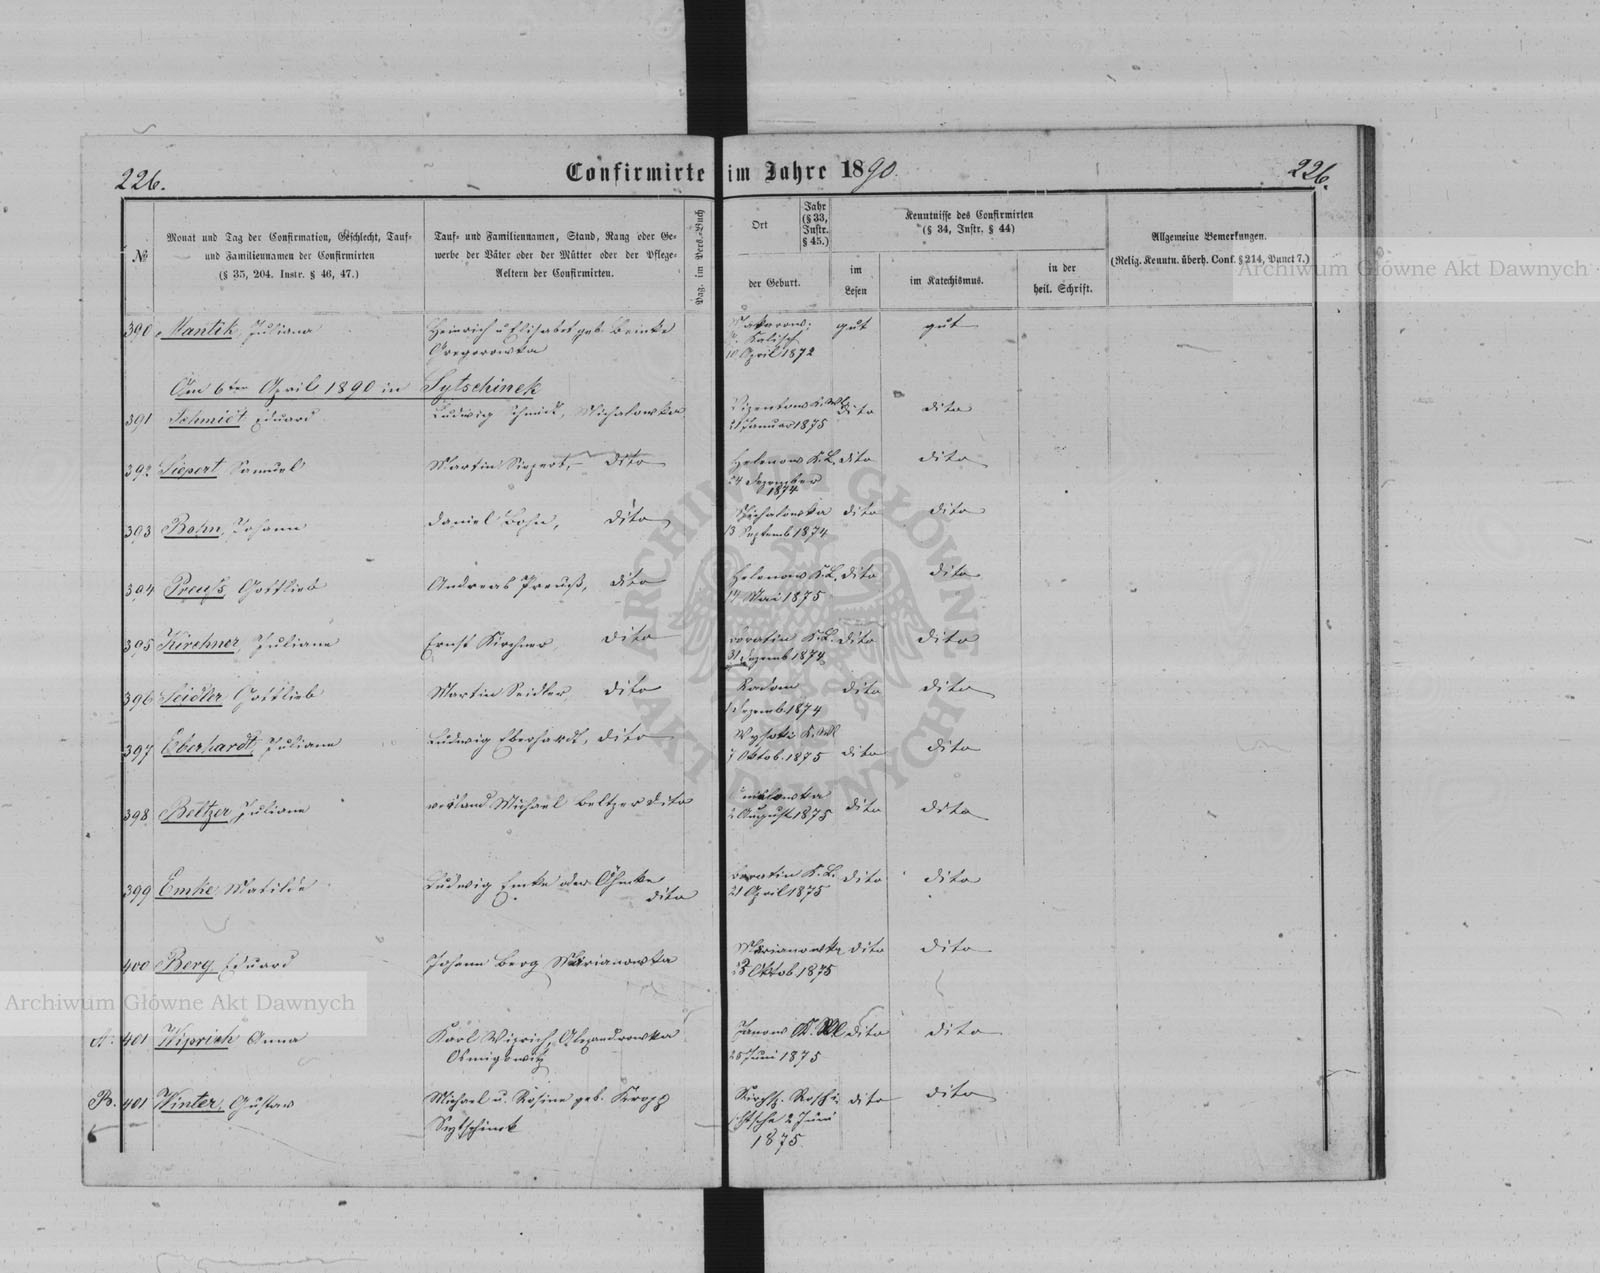 226.
Confirmirte im Jahre 1890.
226.
№
Monat und Tag der Confirmation, Geschlecht, Tauf-
und Familiennamen der Confirmirten
(§ 35, 204. Instr. § 46, 47.)
Tauf- und Familiennamen, Stand, Rang oder Ge-
werbe der Väter oder der Mütter oder der Pflege-
Aeltern der Confirmirten.
Pag. im Pers.-Buch
Ort
Jahr
(§ 33,
Instr.
§ 45.)
der Geburt.
Kenntnisse des Confirmirten
(§ 34, Instr. § 44)
im
Lesen
im Katechismus.
in der
heil. Schrift.
Allgemeine Bemerkungen.
(Relig. Kenntn. überh. Conf. § 214, Punct 7.)
Archiwum Główne Akt Dawnych
390 Mantik, Juliana
Heinrich u Elisabet geb. Beinke
Gregorowka
Kalisch
10 April 1872
gut
gut
Am 6ten April 1890 in Sytschinek
391 Schmidt Eduard
Ludwig Schmidt, Michalowka
21 Januar 1875
dito
dito
392 Siepert, Samuel
Martin Siepert, dito
Helenow K.L.
24 Dezember
1874
dito
dito
393 Bohn, Johann
Daniel Bohn, dito
Michalowka
13 Septemb 1874
dito
dito
394 Preuß, Gottlieb
Andreas Preuß, dito
Helenow K.L.
14 Mai 1875
dito
dito
395 Kirchner, Juliane
Ernst Kirchner, dito
boratin K.L.
31 Dezemb 1874
dito
dito
396 Seidler Gottlieb
Martin Seidler, dito
Radom
1 Dezemb 1874
dito
dito
397 Eberhardt, Juliane
Ludwig Eberhardt, dito
Wysoki K.Wl
7 Oktob. 1875
dito
dito
398 Beltzer, Juliane
weiland Michael Beltzer dito
2 August 1875
dito
dito
399 Emke, Matilde
Ludwig Emke oder Öhmke
dito
boratin K.L.
21 April 1875
dito
dito
400 Berg, Eduard
Johann Berg Marianowka
Marianowka
23 Oktob 1875
dito
dito
A. 401 Wiprich Anna
Karl Wiprich, Alexandrowka
Osmigowitz
Janow K. Wl
25 Juni 1875
dito
dito
B. 401 Winter, Gustav
Michael u. Rosine geb. Kropp
Sytschinek
2 Juni
1875.
dito
dito
ARCHIWUM GŁÓWNE
AKT DAWNYCH
Archiwum Główne Akt Dawnych